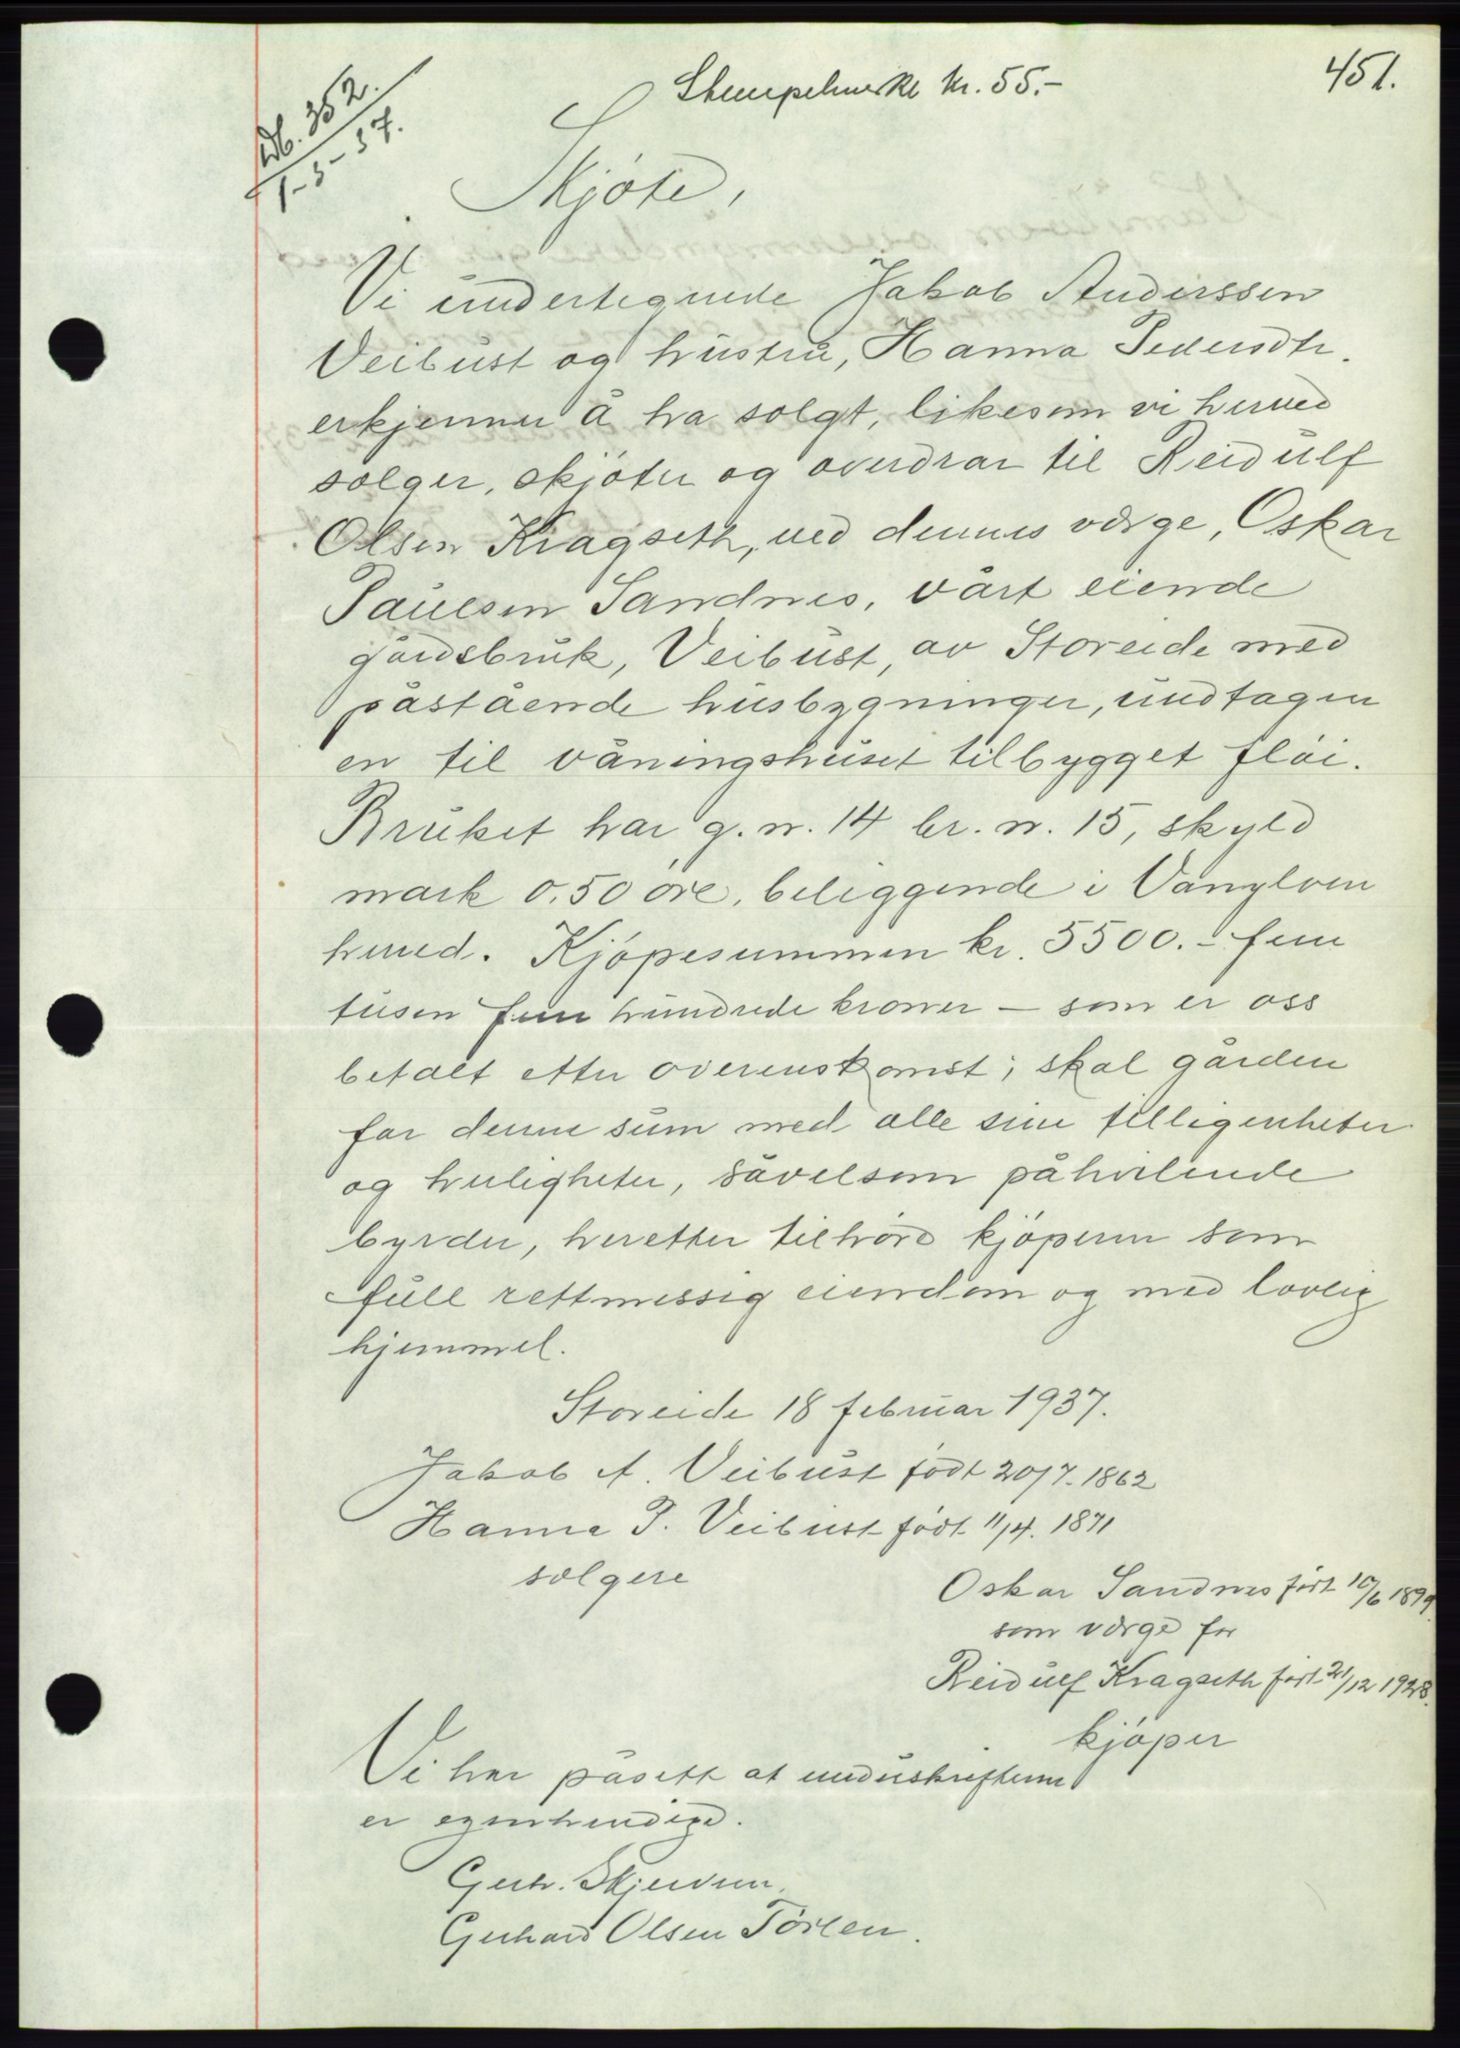 451.
Stempelmerke kr. 55.-
Db. 352.
1-3-37.
Skjøte,
Vi undertegnede Jakob Anderssen
Veibust og hustru, Hanna Pedersdtr.
erkjenner å ha solgt, likesom vi herved
selger, skjøter og overdrar til Reidulf
Olsen Kragseth, ved dennes verge, Oskar
Paulsen Sandnes, vårt eiende
gårdsbruk, Veibust, av Storeide med
påstående husbygninger, undtagen
en til våningshuset tilbygget fløi.
Bruket har g. nr. 14 br. nr. 15, skyld
mark 0.50 øre, beliggende i Vanylven
herred. Kjøpesummen kr. 5500.- fem
tusen fem hundrede kroner - som er oss
betalt etter overenskomst; skal gården
for denne sum med alle sine tilligenheter
og herligheter, såvelsom påhvilende
byrder, heretter tilhøre kjøperen som
full rettmessig eiendom og med lovlig
hjemmel.
Storeide 18 februar 1937.
Jakob A. Veibust født 20/7-1862
Hanna P. Veibust født 11/4. 1871
selgere
Oskar Sandnes født 10/6 1899.
som verge for
Reidulf Kragseth født 21/12 1928.
kjøper
Vi har påsett at underskriftene
er egenhendige.
Gerh. Skjerven.
Gerhard Olsen Tørlen.